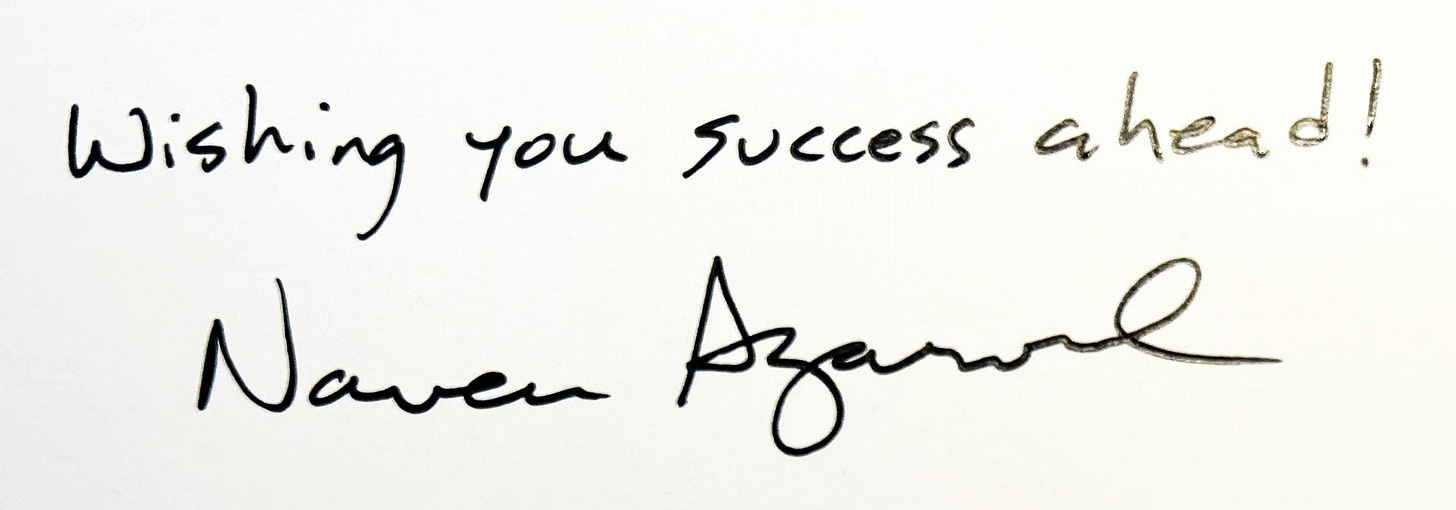 Wishing you success ahead!
Naven Agarwal